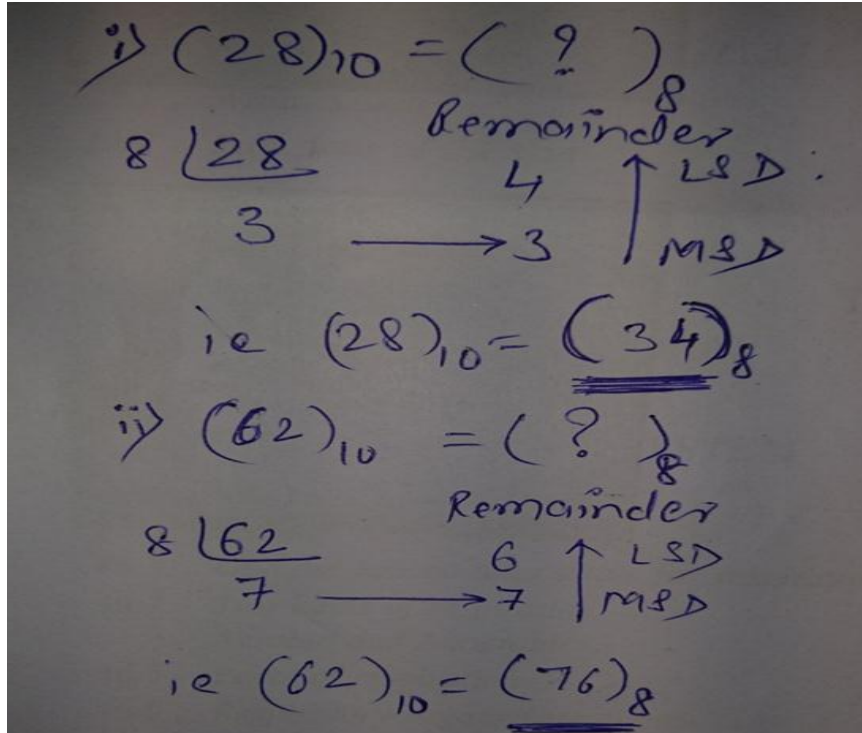 i) (28)10 = ( ? )8
Remainder
8 28 4 ↑ LSD .
3 → 3 MSD
ie (28)10 = (34)8
ii) (62)10 = ( ? )8
Remainder
8 62 6 ↑ LSD
7 → 7 MSD
ie (62)10 = (76)8